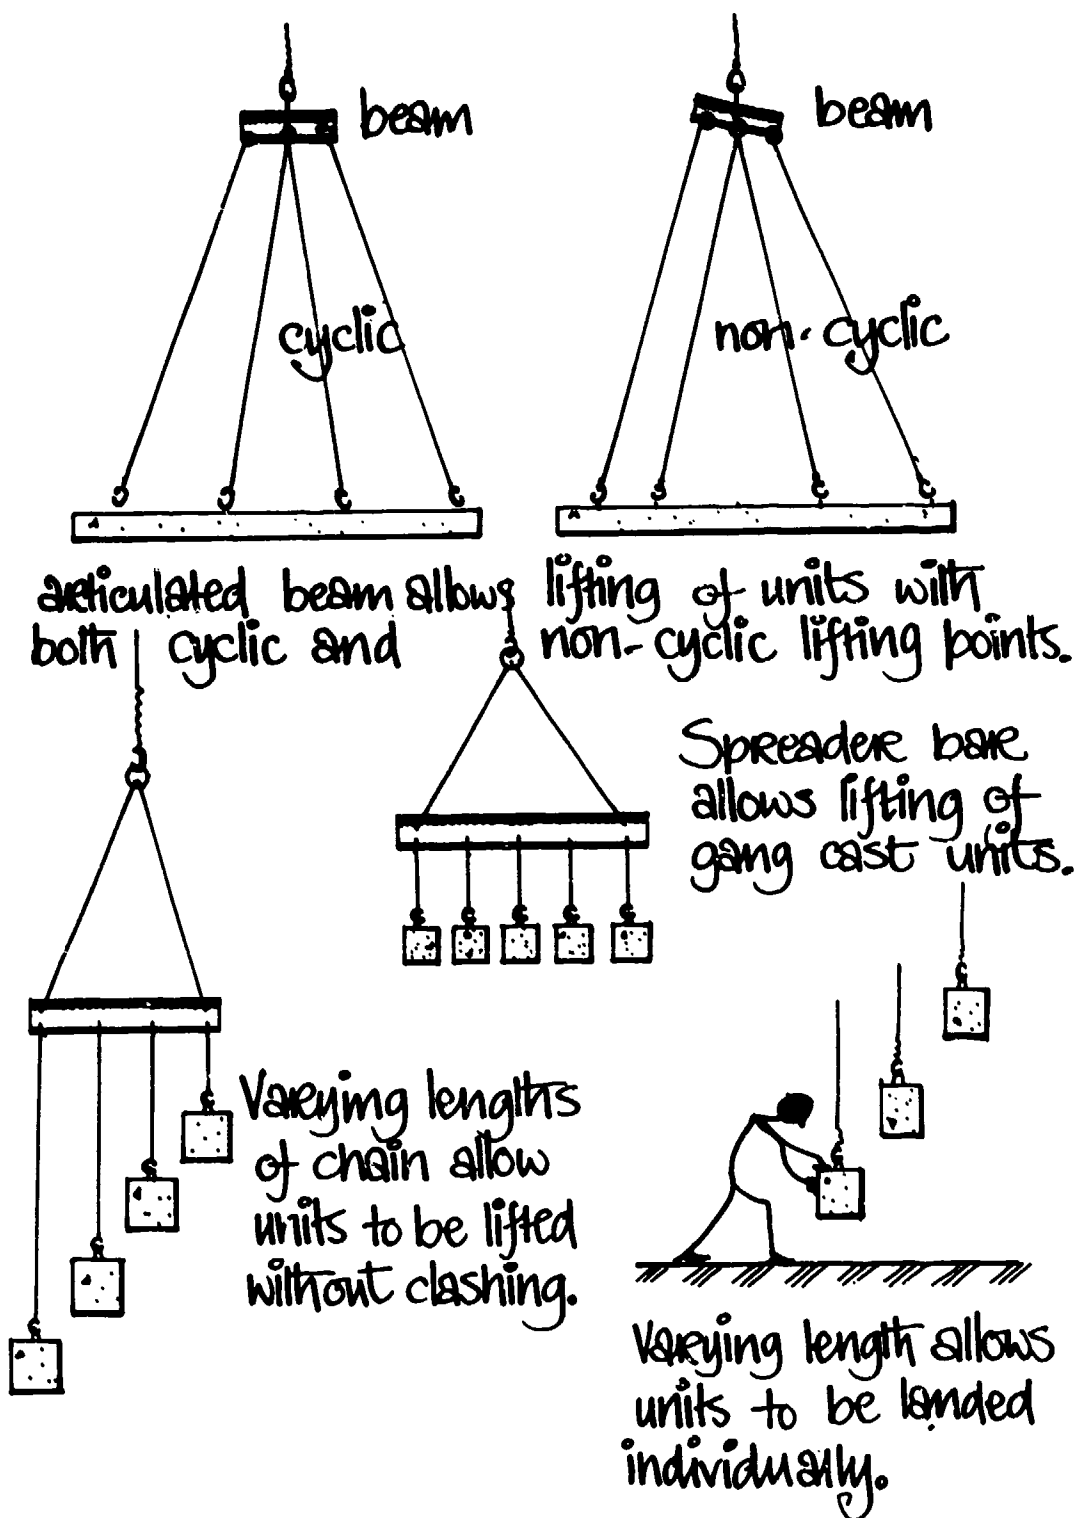 beam
beam
cyclic
non-cyclic
articulated beam allows lifting of units with
both cyclic and non-cyclic lifting points.
Spreader bar
allows lifting of
gang cast units.
Varying lengths
of chain allow
units to be lifted
without clashing.
Varying length allows
units to be landed
individually.